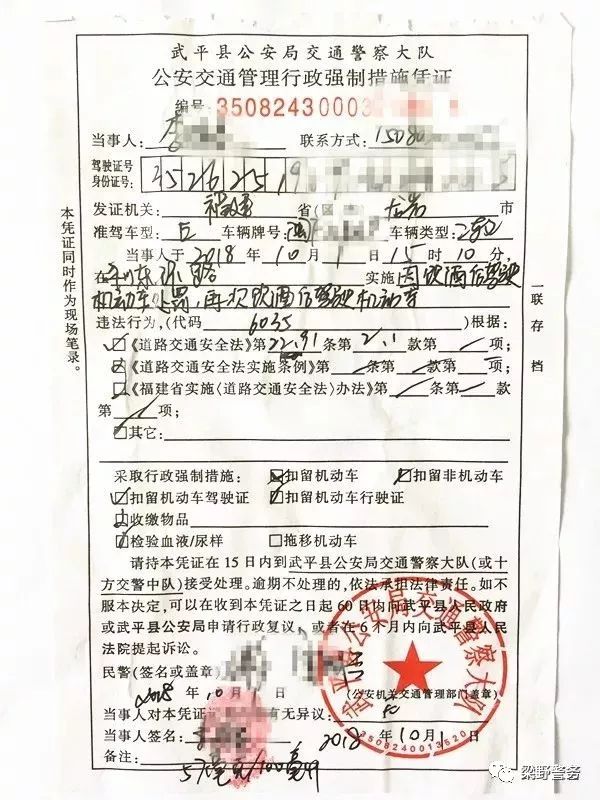 武平县公安局交通警察大队
公安交通管理行政强制措施凭证
编号:35082430003
当事人: 联系方式:15080
驾驶证号
身份证号: 35262519
发证机关: 福建 省(区 龙岩 市
准驾车型: E 车辆牌号: 闽 车辆类型:
当事人于2018年10月1日15时10分,
在 路 实施 因饮酒后驾驶
机动车 罚,再次饮酒后驾驶机动车
违法行为,(代码 6035 )根据:
《道路交通安全法》第22.91条第2.1款第 项;
《道路交通安全法实施条例》第 条第 款第 项;
《福建省实施〈道路交通安全法〉办法》第 条第 款
第 项;
其它:
采取行政强制措施: 扣留机动车 扣留非机动车
扣留机动车驾驶证 扣留机动车行驶证
收缴物品
检验血液/尿样 拖移机动车
请持本凭证在15日内到武平县公安局交通警察大队(或十
方交警中队)接受处理。逾期不处理的,依法承担法律责任。如不
服本决定,可以在收到本凭证之日起60日内向武平县人民政府
或武平县公安局申请行政复议,或者在6个月内向武平县人民
法院提起诉讼。
民警(签名或盖章)
2018年10月1日 (公安机关交通管理部门盖章)
当事人对本凭证 有无异议:
当事人签名: 2018年10月1日
备注: 57毫克/100毫升
本凭证同时作为现场笔录。
一联存档
武平县公安局交通警察大队
3508240013520
梁野警务